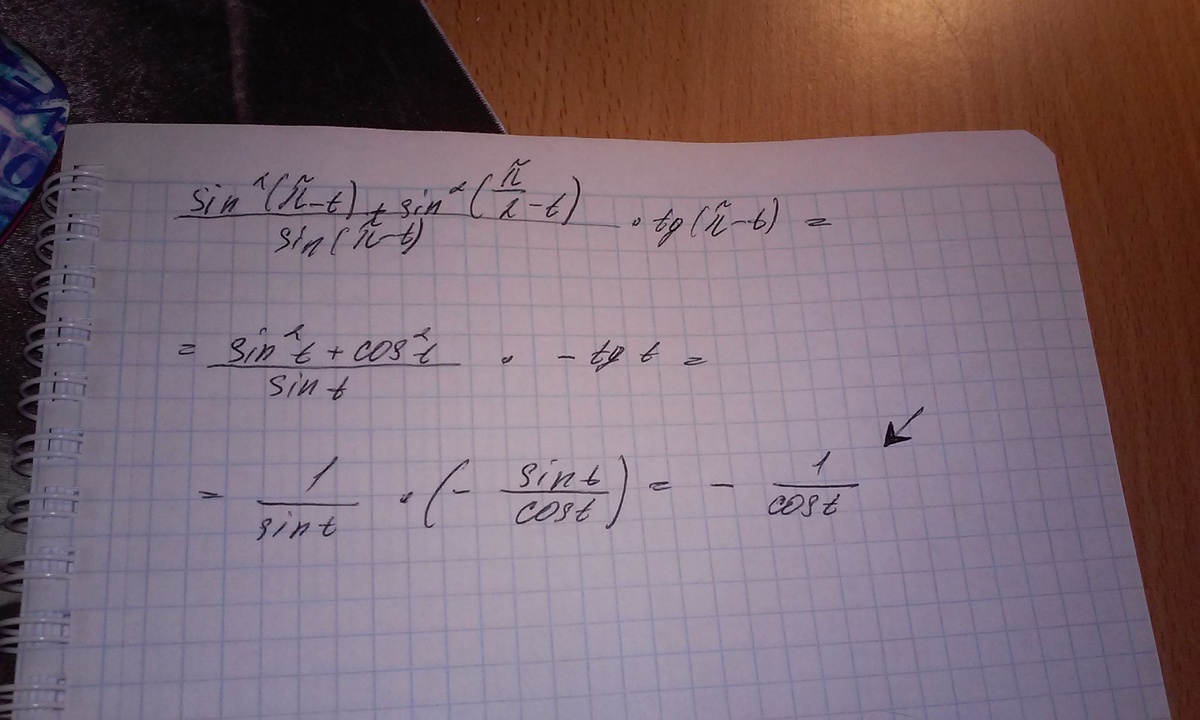 sin²(π-t) + sin²(π/2-t) / sin(π-t) · tg(π-t) =
= sin²t + cos²t / sin t · - tg t =
= 1 / sin t · (- sin t / cos t) = - 1 / cos t